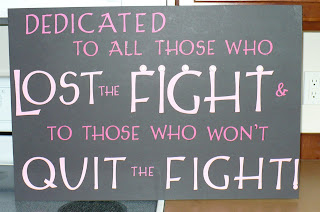 DEDICATED
TO ALL THOSE WHO
LOST THE FIGHT &
TO THOSE WHO WON'T
QUIT THE FIGHT!